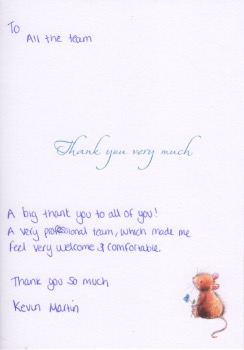 To
All the team
Thank you very much
A big thank you to all of you!
A very professional team, which made me
feel very welcome & comfortable.
Thank you so much
Kevin Martin